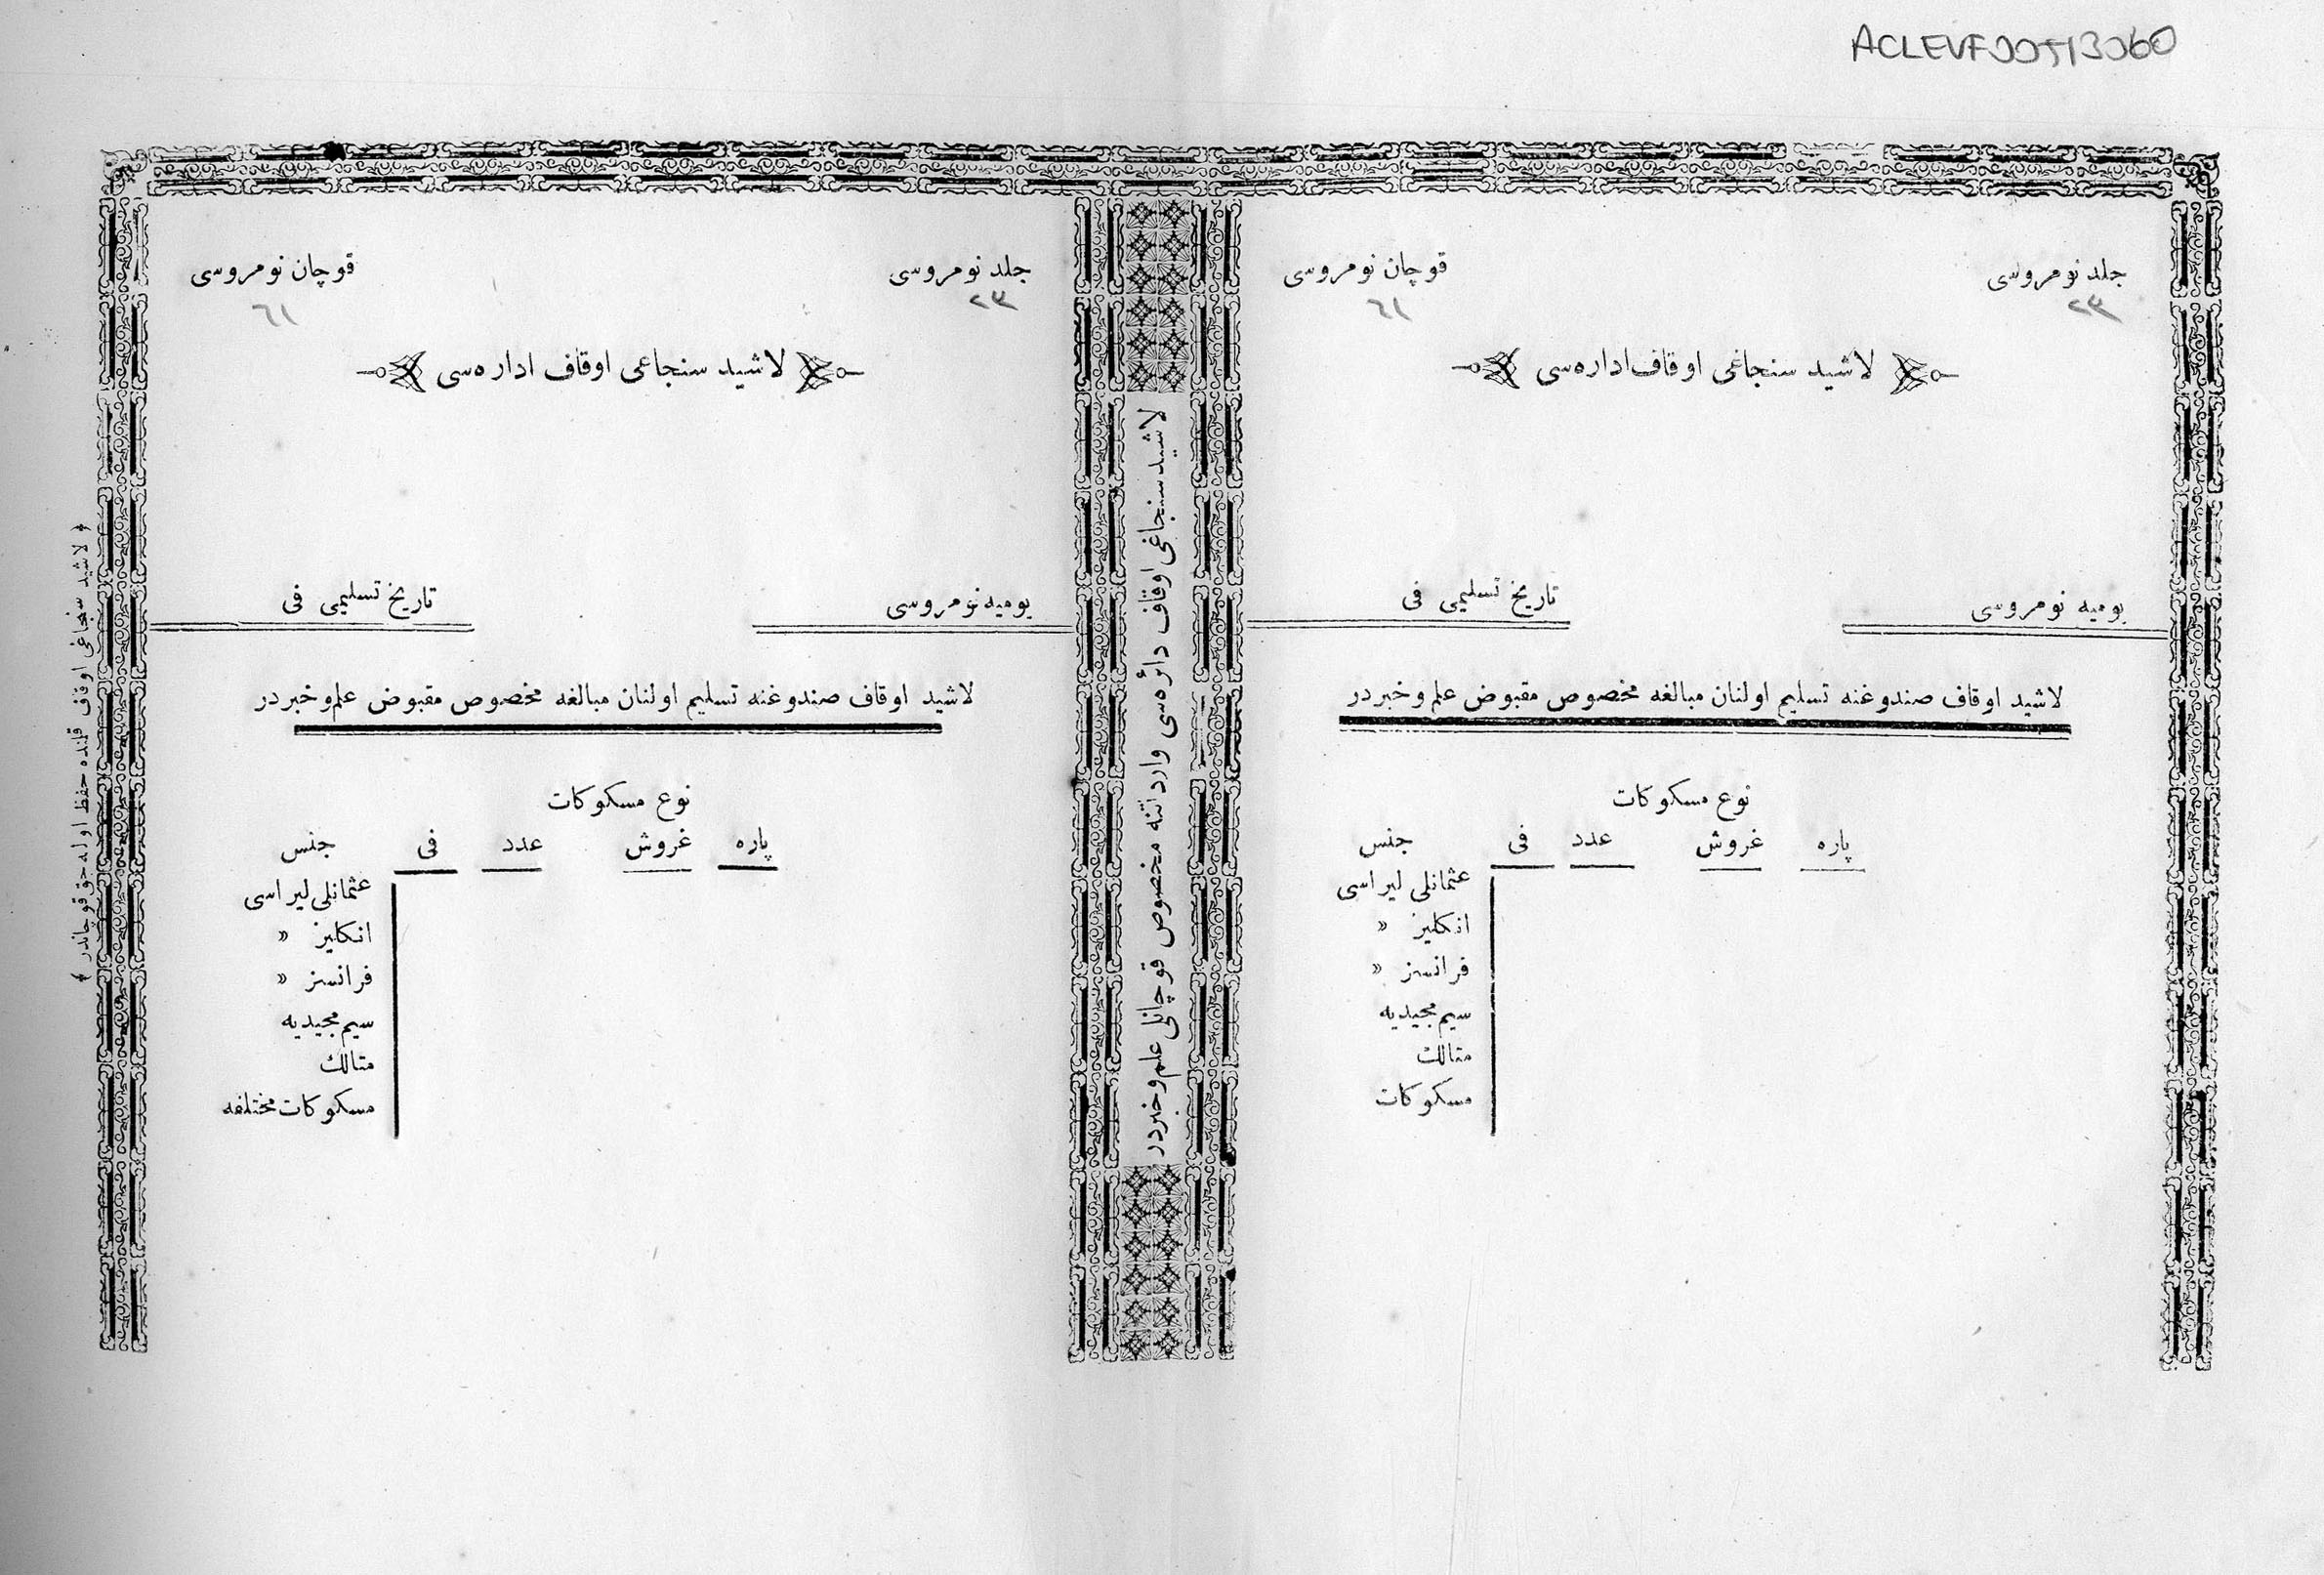 ACLEVF00513060
جلد نومروسی
قوچان نومروسی
٢٣
٦١
لاشید سنجاغی اوقاف اداره‌سی
تاریخ تسلیمی فی
یومیه نومروسی
لاشید اوقاف صندوغنه تسلیم اولنان مبالغه مخصوص مقبوض علم و خبر در
نوع مسکوکات
پاره غروش عدد فی جنس
عثمانلی لیراسی
انکلیز »
فرانسز »
سیم مجیدیه
متالك
مسکوکات
لاشید سنجاغی اوقاف دائره‌سی وارداتنه مخصوص قوچانلی علم و خبر در
جلد نومروسی
قوچان نومروسی
٢٣
٦١
لاشید سنجاغی اوقاف اداره‌سی
تاریخ تسلیمی فی
یومیه نومروسی
لاشید اوقاف صندوغنه تسلیم اولنان مبالغه مخصوص مقبوض علم و خبر در
نوع مسکوکات
پاره غروش عدد فی جنس
عثمانلی لیراسی
انکلیز »
فرانسز »
سیم مجیدیه
متالك
مسکوکات مختلفه
﴿ لاشید سنجاغی اوقاف قلنده حفظ اوله‌جق قوچاندر ﴾